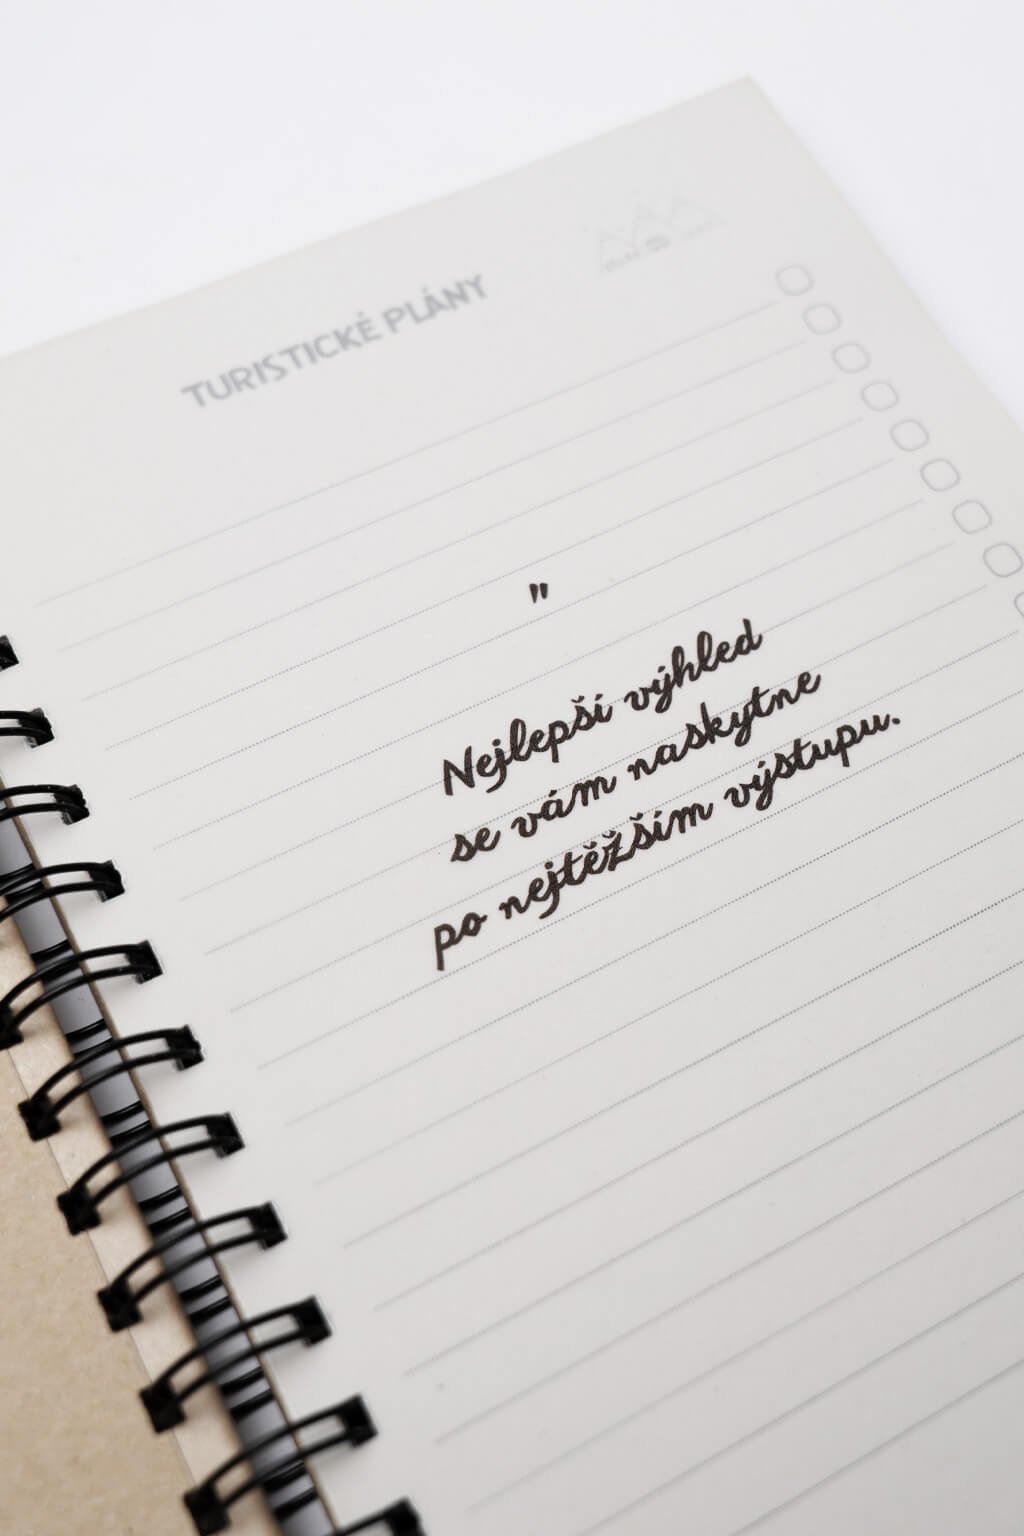 TURISTICKÉ PLÁNY
"
Nejlepší výhled
se vám naskytne
po nejtěžším výstupu.